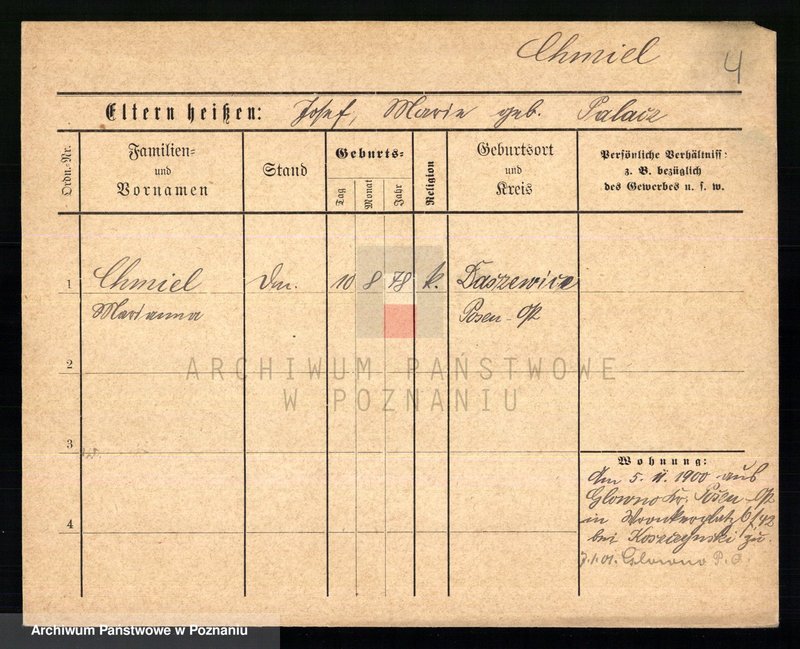 Chmiel
4
Eltern heißen: Josef, Marie geb. Palacz
Ordn.-Nr.
Familien- und Vornamen
Stand
Geburts-
Tag
Monat
Jahr
Religion
Geburtsort und Kreis
Persönliche Verhältniss: z. B. bezüglich des Gewerbes u. s. w.
1 Chmiel Dm. 10 8 78 k. Daszewice
Marianna Posen-Ost
2
ARCHIWUM PAŃSTWOWE
W POZNANIU
3
4
Wohnung:
Am 5. 11. 1900 aus
Glowno Kr. Posen-Ost
in Wronkerplatz 6/42
bei zu.
7.1.01. Glowno P. O.
Archiwum Państwowe w Poznaniu